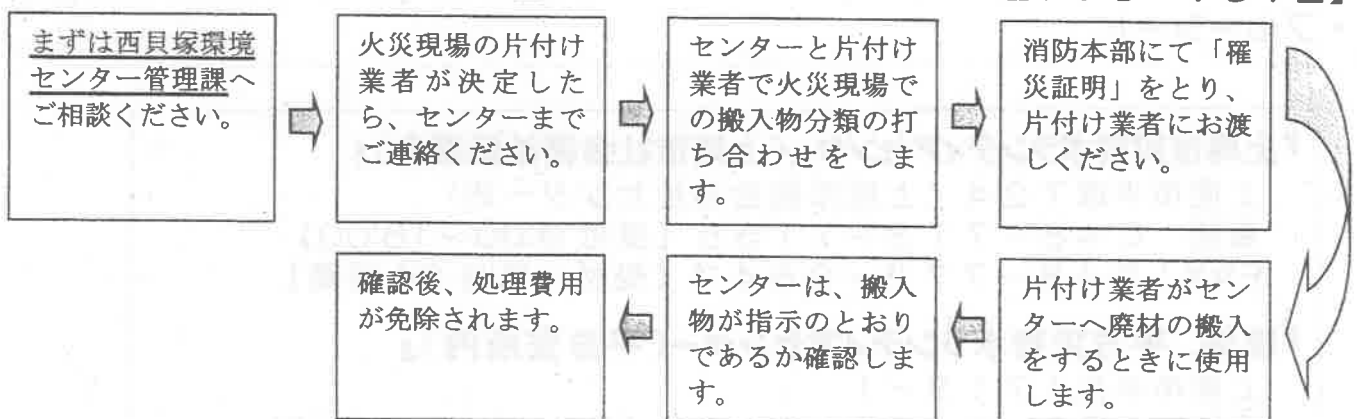 まずは西貝塚環境
センター管理課へ
ご相談ください。
火災現場の片付け
業者が決定した
ら、センターまで
ご連絡ください。
センターと片付け
業者で火災現場で
の搬入物分類の打
ち合わせをしま
す。
消防本部にて「罹
災証明」をとり、
片付け業者にお渡
しください。
片付け業者がセン
ターへ廃材の搬入
をするときに使用
します。
センターは、搬入
物が指示のとおり
であるか確認しま
す。
確認後、処理費用
が免除されます。